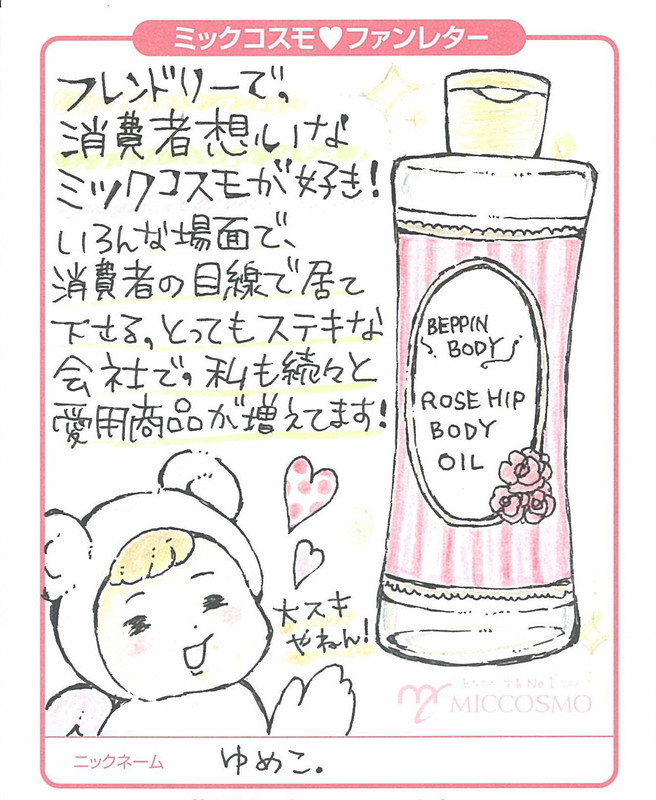 ミックコスモ♥ファンレター
フレンドリーで。
消費者想いな
ミックコスモが好き!
いろんな場面で、
消費者の目線で居て
下さる。とってもステキな
会社で。私も続々と
愛用商品が増えてます!
BEPPIN
BODY
ROSE HIP
BODY
OIL
大スキ
やねん!
No.1
MICCOSMO
ニックネーム
ゆめこ.